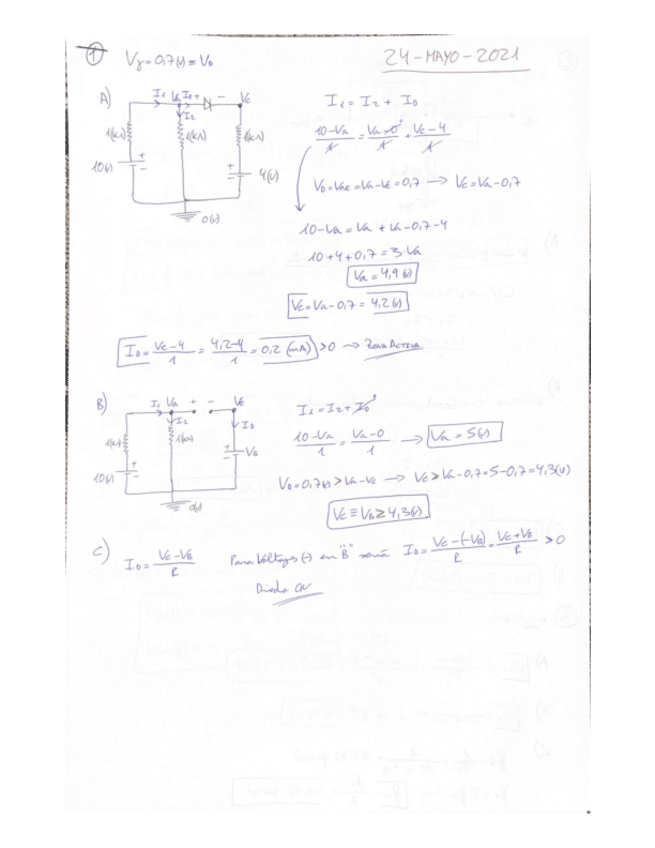 ① Vγ = 0,7(v) ≡ VD
24-MAYO-2021
A)
I1 Va ID + - VE
I2
1(kΩ) 1(kΩ) 1(kΩ)
10(v) + - + - 4(v)
0(v)
I1 = I2 + ID
(10-Va)/1 = (Va-0)/1 + (VE-4)/1
VD = VAE = Va-VE = 0,7 → VE = Va-0,7
10-Va = Va + Va-0,7-4
10+4+0,7 = 3·Va
Va = 4,9(v)
VE = Va-0,7 = 4,2(v)
ID = (VE-4)/1 = (4,2-4)/1 = 0,2 (mA) >0 → ZONA ACTIVA
B)
I1 Va + - VE
I2 ID
1(kΩ) 1(kΩ)
10(v) + - + - VB
0(v)
I1 = I2 + ID
(10-Va)/1 = (Va-0)/1 → Va = 5(v)
VD = 0,7(v) > Va-VE → VE > Va-0,7 = 5-0,7 = 4,3(v)
VE ≡ VB ≥ 4,3(v)
C) ID = (VE-VB)/R Para Voltages (-) en "B" será ID = (VE-(-VB))/R = (VE+VB)/R > 0
Diodo ON